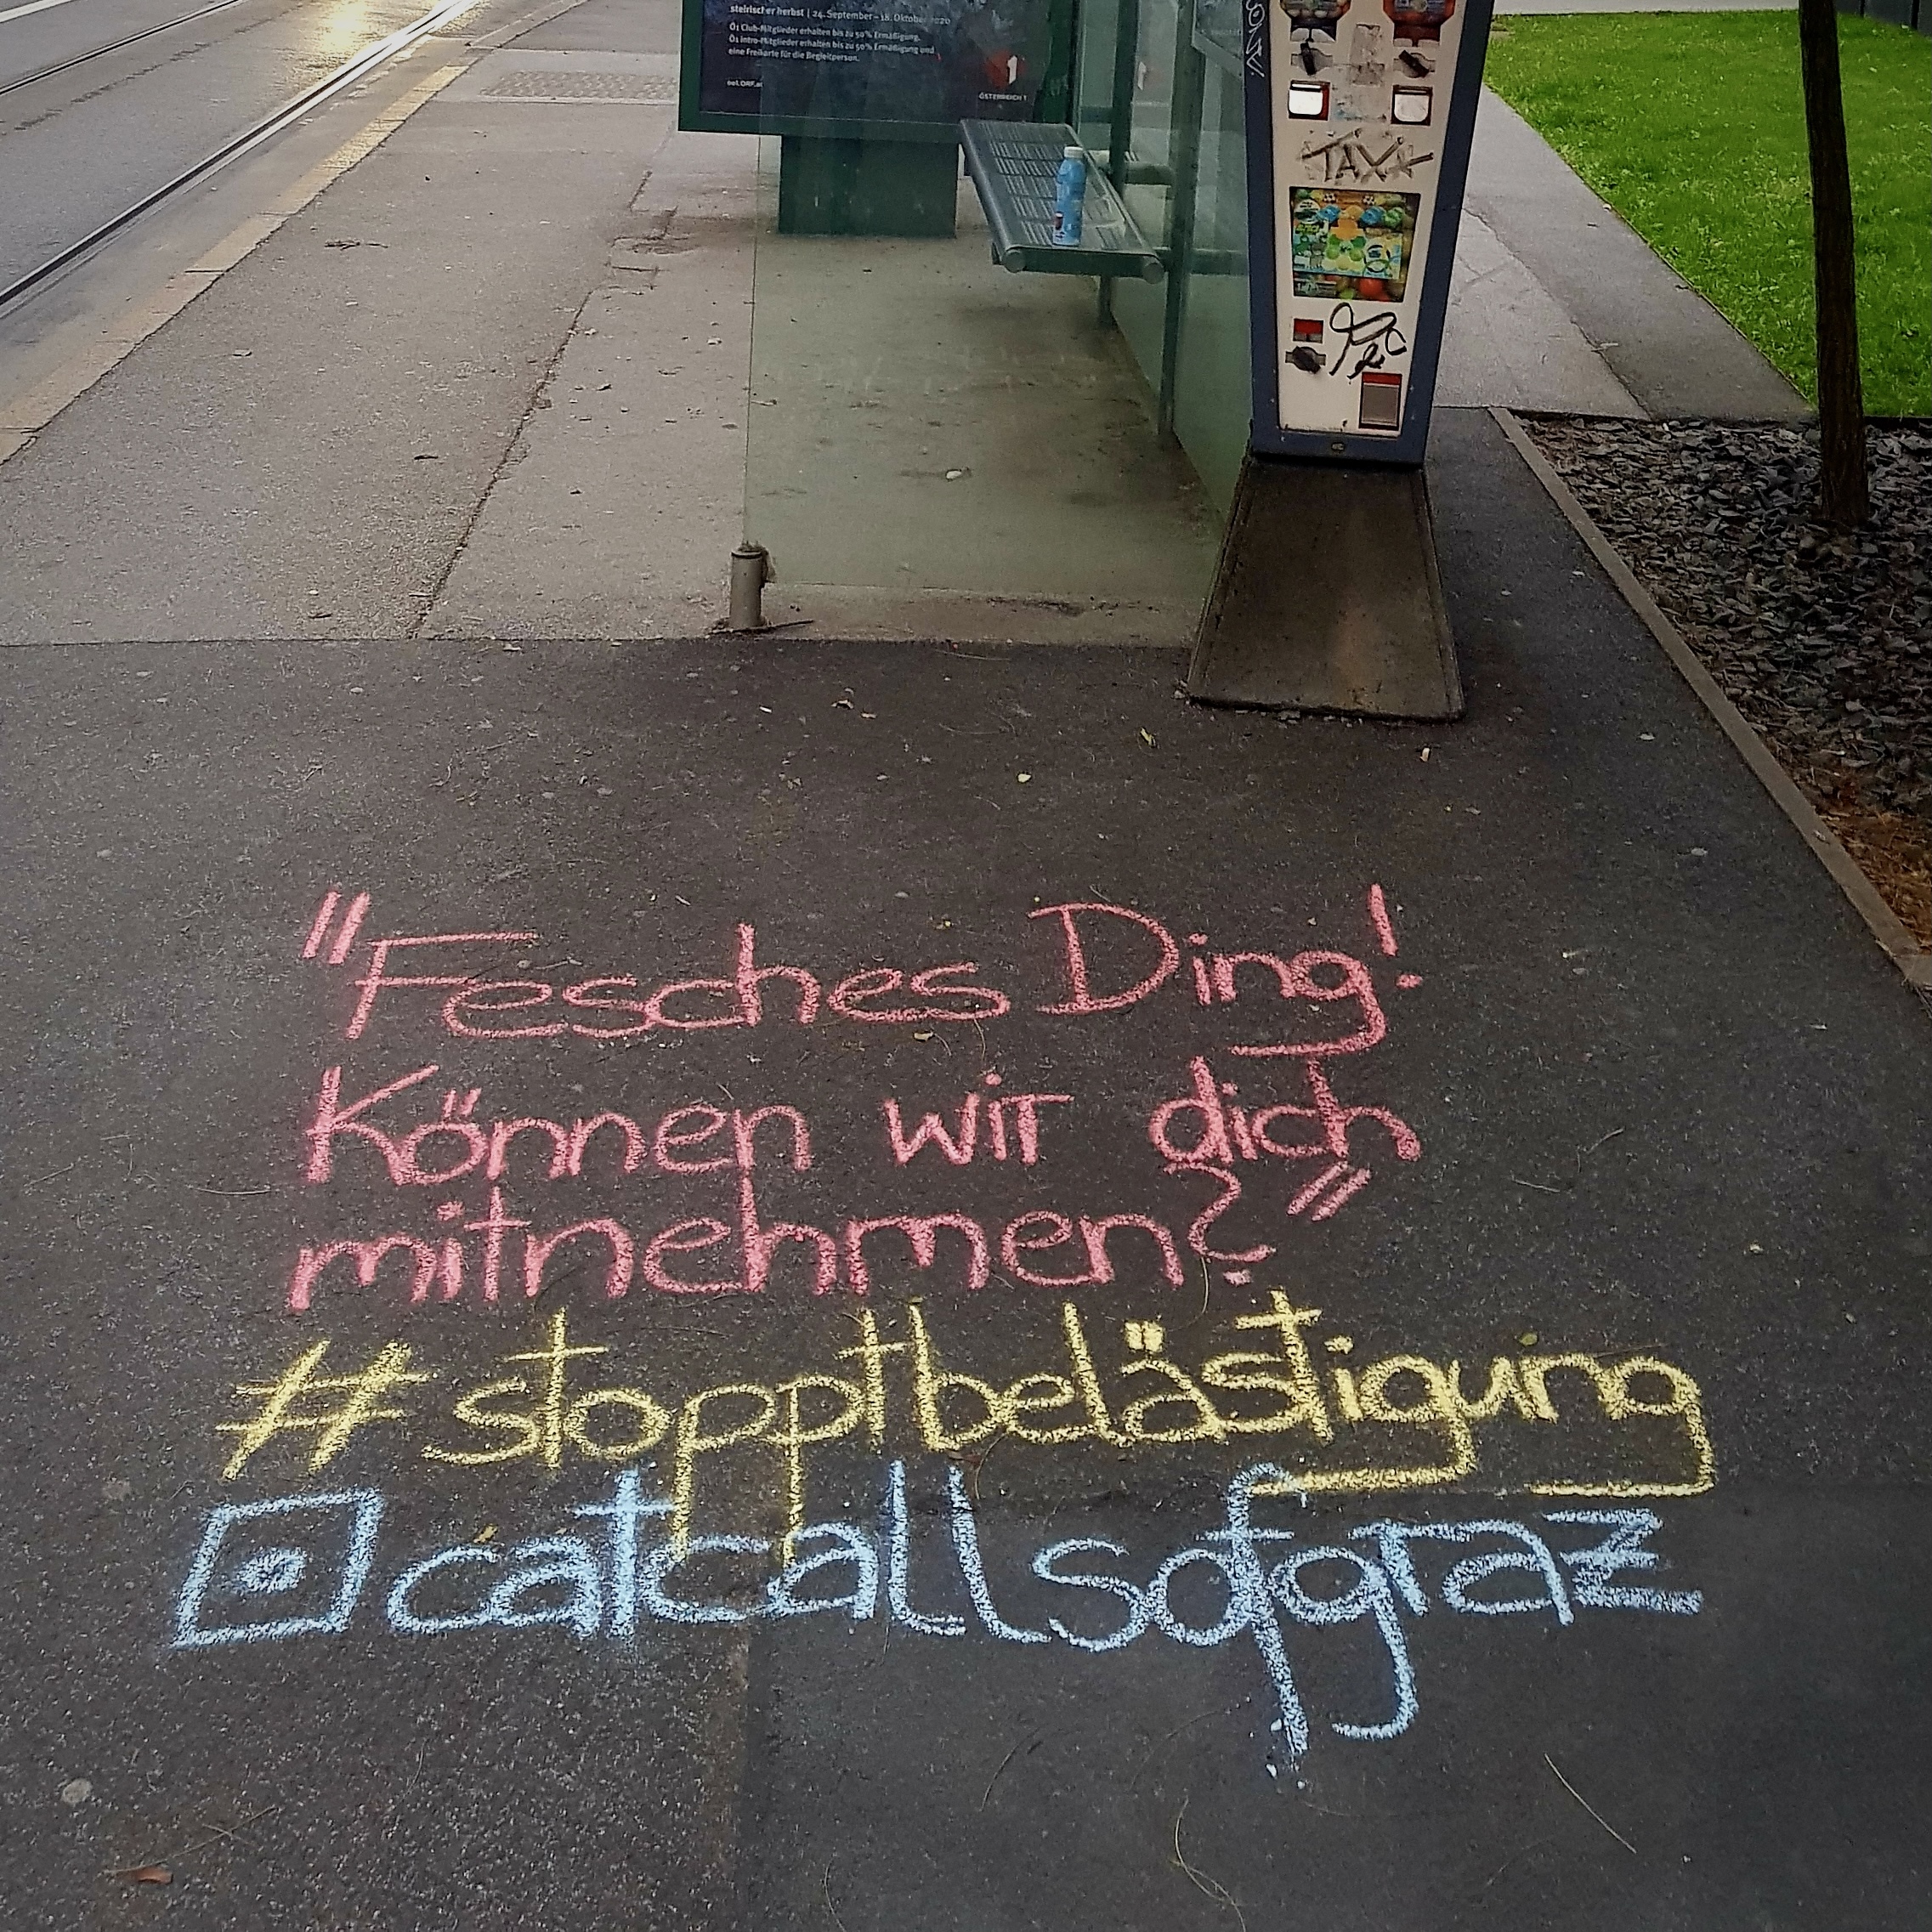 steirischer herbst | 24. September – 18. Oktober 2020
Ö1 Club-Mitglieder erhalten bis zu 50% Ermäßigung.
Ö1 Intro-Mitglieder erhalten bis zu 50% Ermäßigung und
eine Freikarte für die Begleitperson.
oe1.ORF.at
ÖSTERREICH 1
TAXX
"Fesches Ding!
Können wir dich
mitnehmen?"
#stopptbelästigung
catcallsofgraz